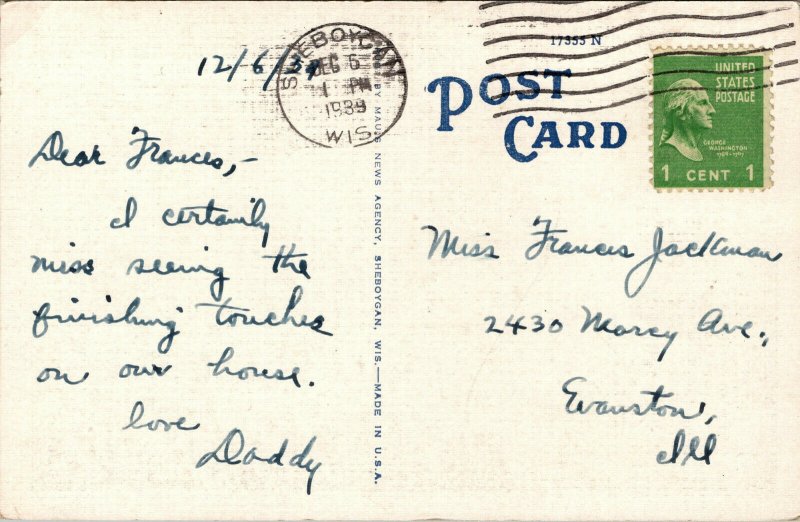 12/6/39
SHEBOYGAN
DEC 6
1 PM
1939
WIS
17355 N
POST
CARD
UNITED
STATES
POSTAGE
GEORGE
WASHINGTON
1789-1797
1 CENT 1
Dear Frances,-
I certainly
miss seeing the
finishing touches
on our house.
love
Daddy
NEWS AGENCY, SHEBOYGAN, WIS.—MADE IN U.S.A.
Miss Frances Jackman
2430 Marcy Ave.,
Evanston,
Ill